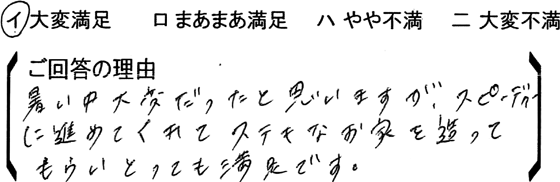 イ 大変満足　ロ まあまあ満足　ハ やや不満　ニ 大変不満
ご回答の理由
暑い中大変だったと思いますが、スピーディー
に進めてくれてステキなお家を造って
もらいとっても満足です。